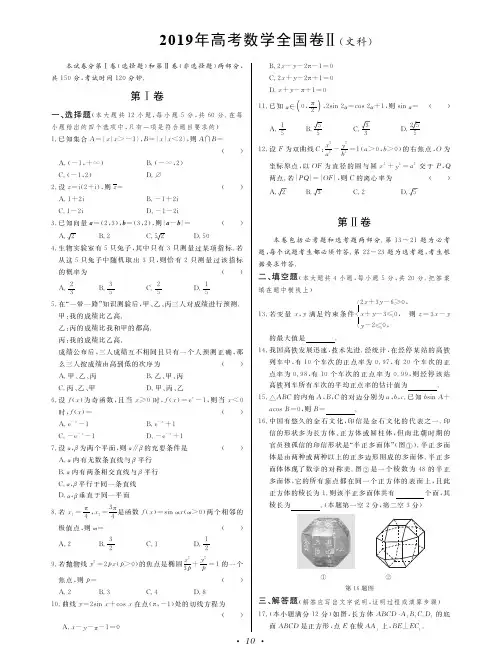 2019年高考数学全国卷Ⅱ(文科)
本试卷分第Ⅰ卷(选择题)和第Ⅱ卷(非选择题)两部分,
共150分,考试时间120分钟.
第Ⅰ卷
一、选择题(本大题共12小题,每小题5分,共60分.在每
小题给出的四个选项中,只有一项是符合题目要求的)
1.已知集合A={x|x>-1},B={x|x<2},则A∩B=
( )
A.(-1,+∞) B.(-∞,2)
C.(-1,2) D.∅
2.设z=i(2+i),则z̄= ( )
A.1+2i B.-1+2i
C.1-2i D.-1-2i
3.已知向量a=(2,3),b=(3,2),则|a-b|= ( )
A.√2 B.2 C.5√2 D.50
4.生物实验室有5只兔子,其中只有3只测量过某项指标.若
从这5只兔子中随机取出3只,则恰有2只测量过该指标
的概率为 ( )
A.2/3 B.3/5 C.2/5 D.1/5
5.在“一带一路”知识测验后,甲、乙、丙三人对成绩进行预测.
甲:我的成绩比乙高.
乙:丙的成绩比我和甲的都高.
丙:我的成绩比乙高.
成绩公布后,三人成绩互不相同且只有一个人预测正确,那
么三人按成绩由高到低的次序为 ( )
A.甲、乙、丙 B.乙、甲、丙
C.丙、乙、甲 D.甲、丙、乙
6.设f(x)为奇函数,且当x≥0时,f(x)=eˣ-1,则当x<0
时,f(x)= ( )
A.e⁻ˣ-1 B.e⁻ˣ+1
C.-e⁻ˣ-1 D.-e⁻ˣ+1
7.设α,β为两个平面,则α∥β的充要条件是 ( )
A.α内有无数条直线与β平行
B.α内有两条相交直线与β平行
C.α,β平行于同一条直线
D.α,β垂直于同一平面
8.若x₁=π/4,x₂=3π/4是函数f(x)=sin ωx(ω>0)两个相邻的
极值点,则ω= ( )
A.2 B.3/2 C.1 D.1/2
9.若抛物线y²=2px(p>0)的焦点是椭圆x²/3p+y²/p=1的一个
焦点,则p= ( )
A.2 B.3 C.4 D.8
10.曲线y=2sin x+cos x在点(π,-1)处的切线方程为
( )
A.x-y-π-1=0
B.2x-y-2π-1=0
C.2x+y-2π+1=0
D.x+y-π+1=0
11.已知α∈(0,π/2),2sin 2α=cos 2α+1,则sin α= ( )
A.1/5 B.√5/5 C.√3/3 D.2√5/5
12.设F为双曲线C:x²/a²-y²/b²=1(a>0,b>0)的右焦点,O为
坐标原点,以OF为直径的圆与圆x²+y²=a²交于P,Q
两点.若|PQ|=|OF|,则C的离心率为 ( )
A.√2 B.√3 C.2 D.√5
第Ⅱ卷
本卷包括必考题和选考题两部分.第13~21题为必考
题,每个试题考生都必须作答.第22~23题为选考题,考生根
据要求作答.
二、填空题(本大题共4小题,每小题5分,共20分.把答案
填在题中横线上)
13.若变量x,y满足约束条件{2x+3y-6≥0, x+y-3≤0, y-2≤0, 则z=3x-y
的最大值是 .
14.我国高铁发展迅速,技术先进.经统计,在经停某站的高铁
列车中,有10个车次的正点率为0.97,有20个车次的正
点率为0.98,有10个车次的正点率为0.99,则经停该站
高铁列车所有车次的平均正点率的估计值为 .
15.△ABC的内角A,B,C的对边分别为a,b,c.已知bsin A+
acos B=0,则B= .
16.中国有悠久的金石文化,印信是金石文化的代表之一.印
信的形状多为长方体、正方体或圆柱体,但南北朝时期的
官员独孤信的印信形状是“半正多面体”(图①).半正多面
体是由两种或两种以上的正多边形围成的多面体.半正多
面体体现了数学的对称美.图②是一个棱数为48的半正
多面体,它的所有顶点都在同一个正方体的表面上,且此
正方体的棱长为1.则该半正多面体共有 个面,其
棱长为 .(本题第一空2分,第二空3分)
① ②
第16题图
三、解答题(解答应写出文字说明,证明过程或演算步骤)
17.(本小题满分12分)如图,长方体ABCD-A₁B₁C₁D₁的底
面ABCD是正方形,点E在棱AA₁上,BE⊥EC₁.
· 10 ·